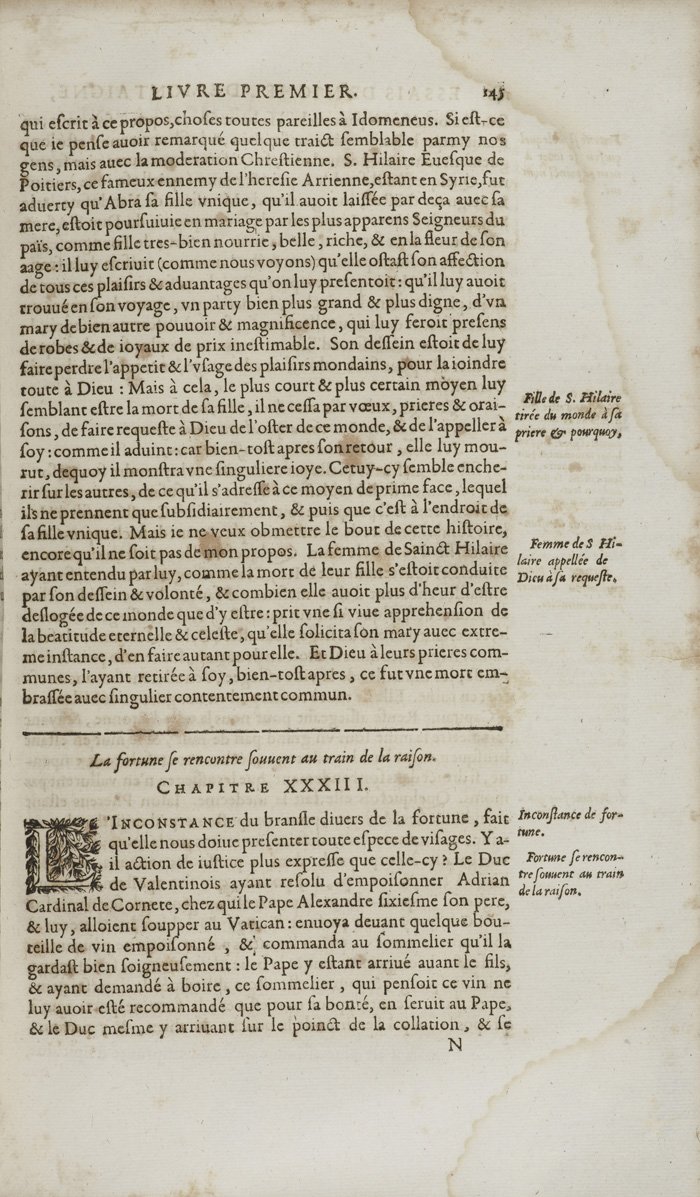 LIVRE PREMIER. 145
qui eſcrit à ce propos, choſes toutes pareilles à Idomeneus. Si eſt-ce
que ie penſe auoir remarqué quelque traict ſemblable parmy nos
gens, mais auec la moderation Chreſtienne. S. Hilaire Eueſque de
Poitiers, ce fameux ennemy de l'hereſie Arrienne, eſtant en Syrie, fut
aduerty qu'Abra ſa fille vnique, qu'il auoit laiſſée par deça auec ſa
mere, eſtoit pourſuiuie en mariage par les plus apparens Seigneurs du
païs, comme fille tres-bien nourrie, belle, riche, & en la fleur de ſon
aage: il luy eſcriuit (comme nous voyons) qu'elle oſtaſt ſon affection
de tous ces plaiſirs & aduantages qu'on luy preſentoit: qu'il luy auoit
trouué en ſon voyage, vn party bien plus grand & plus digne, d'vn
mary de bien autre pouuoir & magnificence, qui luy feroit preſens
de robes & de ioyaux de prix ineſtimable. Son deſſein eſtoit de luy
faire perdre l'appetit & l'vſage des plaiſirs mondains, pour la ioindre
toute à Dieu: Mais à cela, le plus court & plus certain moyen luy
ſemblant eſtre la mort de ſa fille, il ne ceſſa par vœux, prieres & orai-
ſons, de faire requeſte à Dieu de l'oſter de ce monde, & de l'appeller à
ſoy: comme il aduint: car bien-toſt apres ſon retour, elle luy mou-
rut, dequoy il monſtra vne ſinguliere ioye. Cetuy-cy ſemble enche-
rir ſur les autres, de ce qu'il s'adreſſe à ce moyen de prime face, lequel
ils ne prennent que ſubſidiairement, & puis que c'eſt à l'endroit de
ſa fille vnique. Mais ie ne veux obmettre le bout de cette hiſtoire,
encore qu'il ne ſoit pas de mon propos. La femme de Sainct Hilaire
ayant entendu par luy, comme la mort de leur fille s'eſtoit conduite
par ſon deſſein & volonté, & combien elle auoit plus d'heur d'eſtre
deſlogée de ce monde que d'y eſtre: prit vne ſi viue apprehenſion de
la beatitude eternelle & celeſte, qu'elle ſolicita ſon mary auec extre-
me inſtance, d'en faire autant pour elle. Et Dieu à leurs prieres com-
munes, l'ayant retirée à ſoy, bien-toſt apres, ce fut vne mort em-
braſſée auec ſingulier contentement commun.
Fille de S. Hilaire
tirée du monde à ſa
priere & pourquoy,
Femme de S Hi-
laire appellée de
Dieu à ſa requeſte.
La fortune ſe rencontre ſouuent au train de la raiſon.
CHAPITRE XXXIII.
L'INCONSTANCE du branſle diuers de la fortune, fait
qu'elle nous doiue preſenter toute eſpece de viſages. Y a-
il action de iuſtice plus expreſſe que celle-cy? Le Duc
de Valentinois ayant reſolu d'empoiſonner Adrian
Cardinal de Cornete, chez qui le Pape Alexandre ſixieſme ſon pere,
& luy, alloient ſoupper au Vatican: enuoya deuant quelque bou-
teille de vin empoiſonné, & commanda au ſommelier qu'il la
gardaſt bien ſoigneuſement: le Pape y eſtant arriué auant le fils,
& ayant demandé à boire, ce ſommelier, qui penſoit ce vin ne
luy auoir eſté recommandé que pour ſa bonté, en ſeruit au Pape,
& le Duc meſme y arriuant ſur le poinct de la collation, & ſe
Inconſtance de for-
tune.
Fortune ſe rencon-
tre ſouuent au train
de la raiſon.
N